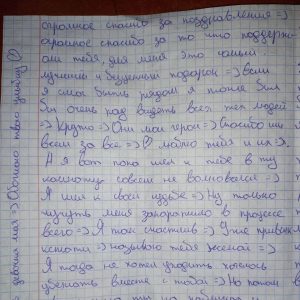 огромное спасибо за поздравления =)
огромное спасибо за то что поддержи-
али тебя, для меня это самый
лучший и бесценный подарок =) если
я смог быть рядом я тоже был
бы очень рад видеть всех тех людей
=) Круто =) Они мои герои =) Спасибо им
всем за все =) люблю тебя и их =).
А я вот пока шел к тебе в ту
комнату совсем не волновался =)
Я шел к своей судьбе =) Ну только
чучуть меня запарошило в процессе
всего =) Я так счастлив =) Уже привык
кстати =) называю тебя женой =)
Я тогда не хотел уходить хотелось
убежать вместе с тобой =) Но потом
девочка моя =) Обожаю твою улыбку